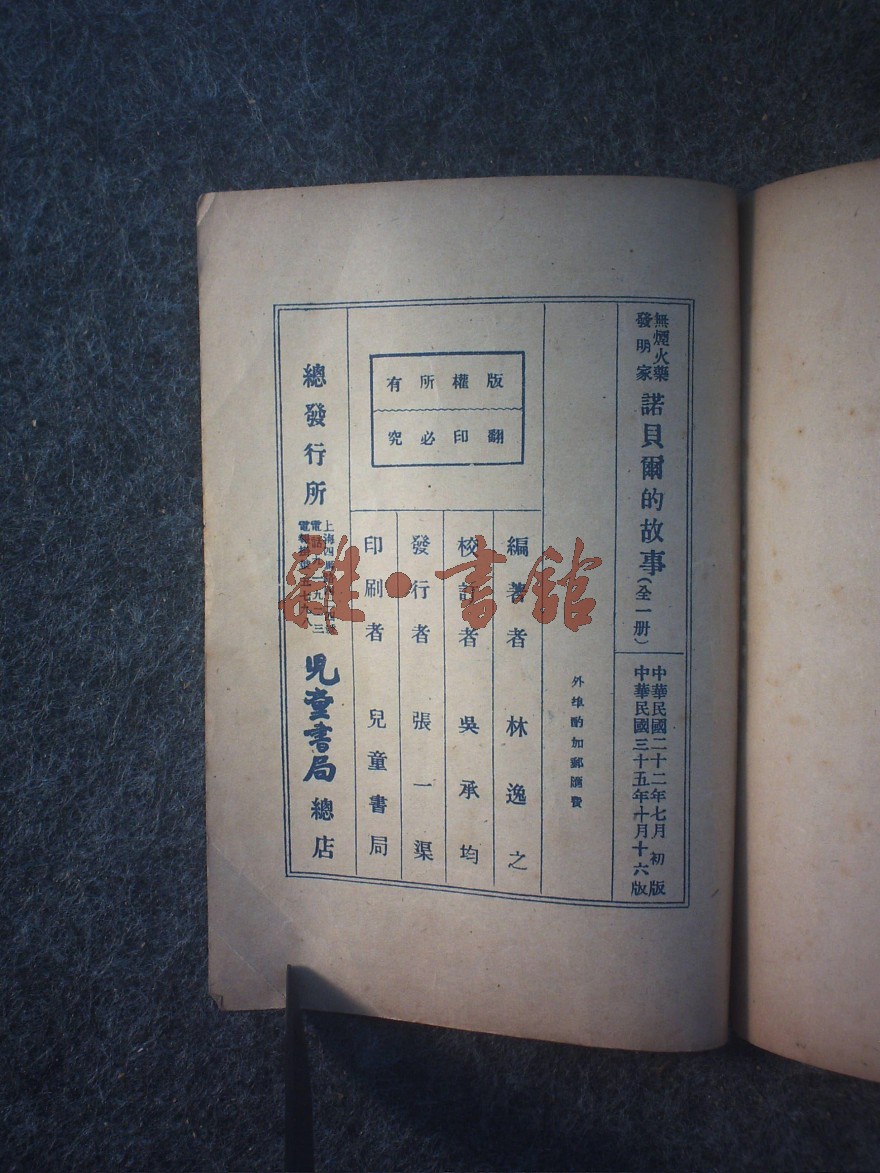 無煙火藥
發明家
諾貝爾的故事(全一册)
中華民國二十二年七月初版
中華民國三十五年十月十六版
外埠酌加郵滙費
版權所有
翻印必究
編著者 林逸之
校訂者 吳承均
發行者 張一渠
印刷者 兒童書局
總發行所
上海四
電話九一九二三
電報掛號
兒童書局 總店
雜·書館